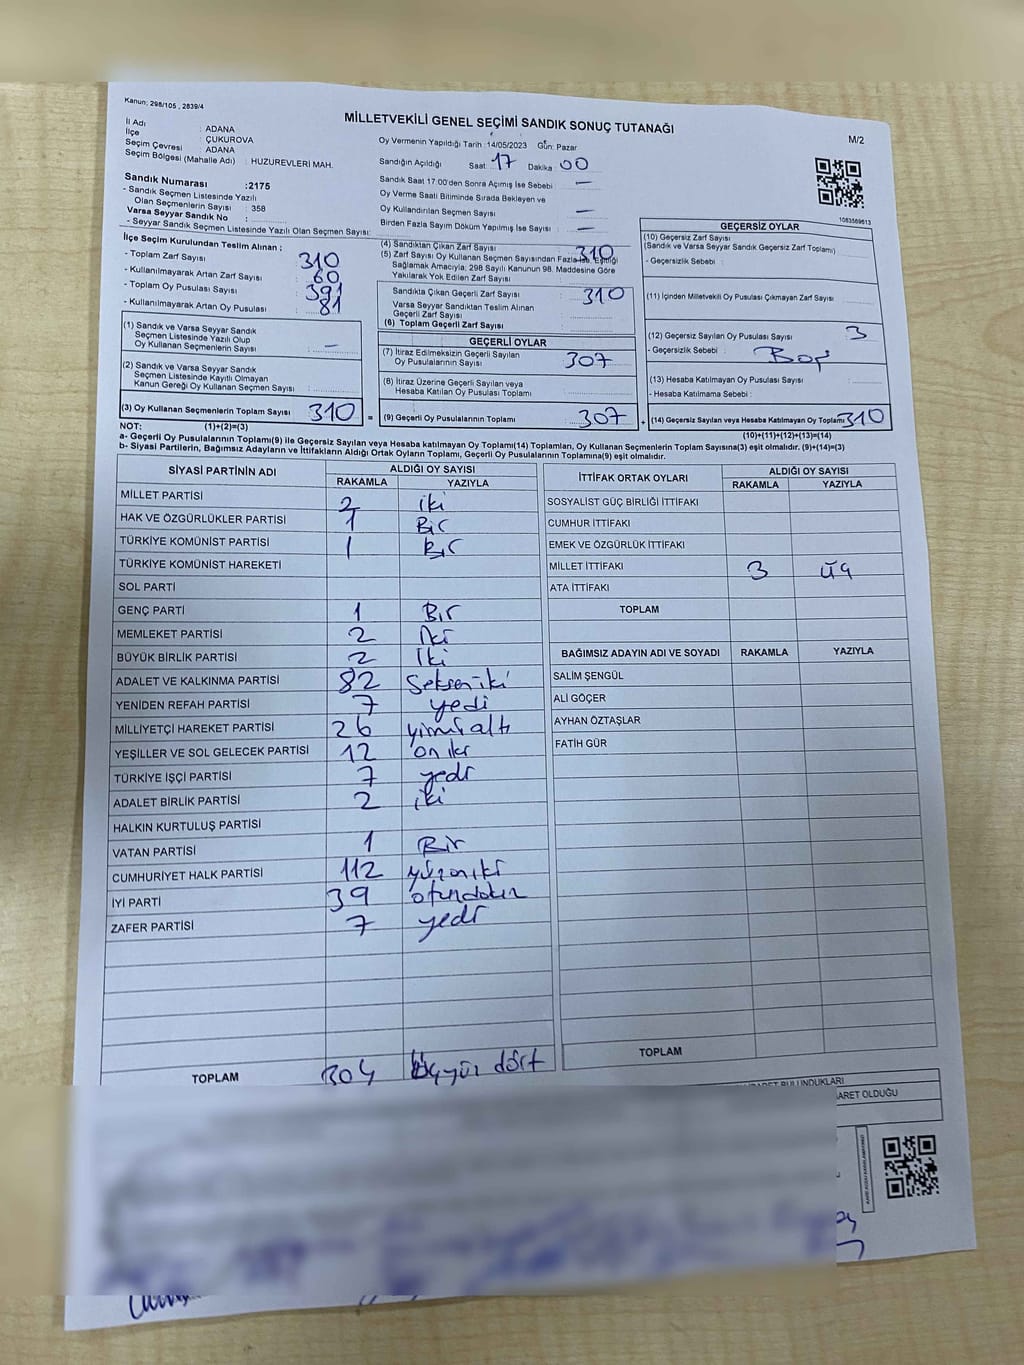 Kanun; 298/105 , 2839/4
MİLLETVEKİLİ GENEL SEÇİMİ SANDIK SONUÇ TUTANAĞI
M/2
İl Adı : ADANA
İlçe : ÇUKUROVA
Seçim Çevresi : ADANA
Seçim Bölgesi (Mahalle Adı) : HUZUREVLERİ MAH.
Sandık Numarası :2175
- Sandık Seçmen Listesinde Yazılı
Olan Seçmenlerin Sayısı : 358
Varsa Seyyar Sandık No :
- Seyyar Sandık Seçmen Listesinde Yazılı Olan Seçmen Sayısı:
Oy Vermenin Yapıldığı Tarih : 14/05/2023 Gün: Pazar
Sandığın Açıldığı Saat: 17 Dakika: 00
Sandık Saat 17:00'den Sonra Açımış İse Sebebi : —
Oy Verme Saati Bitiminde Sırada Bekleyen ve
Oy Kullandırılan Seçmen Sayısı : —
Birden Fazla Sayım Döküm Yapılmış İse Sayısı : —
1083569613
İlçe Seçim Kurulundan Teslim Alınan :
- Toplam Zarf Sayısı : 310
- Kullanılmayarak Artan Zarf Sayısı : 60
- Toplam Oy Pusulası Sayısı : 391
- Kullanılmayarak Artan Oy Pusulası : 81
(1) Sandık ve Varsa Seyyar Sandık
Seçmen Listesinde Yazılı Olup
Oy Kullanan Seçmenlerin Sayısı : —
(2) Sandık ve Varsa Seyyar Sandık
Seçmen Listesinde Kayıtlı Olmayan
Kanun Gereği Oy Kullanan Seçmen Sayısı :
(3) Oy Kullanan Seçmenlerin Toplam Sayısı 310 =
(4) Sandıktan Çıkan Zarf Sayısı : 310
(5) Zarf Sayısı Oy Kullanan Seçmen Sayısından Fazla İse, Eşitliği
Sağlamak Amacıyla, 298 Sayılı Kanunun 98. Maddesine Göre
Yakılarak Yok Edilen Zarf Sayısı :
Sandıkta Çıkan Geçerli Zarf Sayısı : 310
Varsa Seyyar Sandıktan Teslim Alınan
Geçerli Zarf Sayısı :
(6) Toplam Geçerli Zarf Sayısı :
GEÇERLİ OYLAR
(7) İtiraz Edilmeksizin Geçerli Sayılan
Oy Pusulalarının Sayısı : 307
(8) İtiraz Üzerine Geçerli Sayılan veya
Hesaba Katılan Oy Pusulası Toplamı :
(9) Geçerli Oy Pusulalarının Toplamı : 307 +
GEÇERSİZ OYLAR
(10) Geçersiz Zarf Sayısı
(Sandık ve Varsa Seyyar Sandık Geçersiz Zarf Toplamı)
- Geçersizlik Sebebi :
(11) İçinden Milletvekili Oy Pusulası Çıkmayan Zarf Sayısı :
(12) Geçersiz Sayılan Oy Pusulası Sayısı : 3
- Geçersizlik Sebebi : Boş
(13) Hesaba Katılmayan Oy Pusulası Sayısı :
- Hesaba Katılmama Sebebi :
(14) Geçersiz Sayılan veya Hesaba Katılmayan Oy Toplamı 310
NOT: (1)+(2)=(3) (10)+(11)+(12)+(13)=(14)
a- Geçerli Oy Pusulalarının Toplamı(9) ile Geçersiz Sayılan veya Hesaba katılmayan Oy Toplamı(14) Toplamları, Oy Kullanan Seçmenlerin Toplam Sayısına(3) eşit olmalıdır. (9)+(14)=(3)
b- Siyasi Partilerin, Bağımsız Adayların ve İttifakların Aldığı Ortak Oyların Toplamı, Geçerli Oy Pusulalarının Toplamına(9) eşit olmalıdır.
SİYASİ PARTİNİN ADI ALDIĞI OY SAYISI
RAKAMLA YAZIYLA
MİLLET PARTİSİ 2 iki
HAK VE ÖZGÜRLÜKLER PARTİSİ 1 Bir
TÜRKİYE KOMÜNİST PARTİSİ 1 Bir
TÜRKİYE KOMÜNİST HAREKETİ
SOL PARTİ
GENÇ PARTİ 1 Bir
MEMLEKET PARTİSİ 2 İki
BÜYÜK BİRLİK PARTİSİ 2 İki
ADALET VE KALKINMA PARTİSİ 82 Seksen iki
YENİDEN REFAH PARTİSİ 7 yedi
MİLLİYETÇİ HAREKET PARTİSİ 26 yirmi altı
YEŞİLLER VE SOL GELECEK PARTİSİ 12 on iki
TÜRKİYE İŞÇİ PARTİSİ 7 yedi
ADALET BİRLİK PARTİSİ 2 iki
HALKIN KURTULUŞ PARTİSİ
VATAN PARTİSİ 1 Bir
CUMHURİYET HALK PARTİSİ 112 yüzoniki
İYİ PARTİ 39 otuzdokuz
ZAFER PARTİSİ 7 yedi
TOPLAM 304 üçyüz dört
İTTİFAK ORTAK OYLARI ALDIĞI OY SAYISI
RAKAMLA YAZIYLA
SOSYALİST GÜÇ BİRLİĞİ İTTİFAKI
CUMHUR İTTİFAKI
EMEK VE ÖZGÜRLÜK İTTİFAKI
MİLLET İTTİFAKI 3 üç
ATA İTTİFAKI
TOPLAM
BAĞIMSIZ ADAYIN ADI VE SOYADI RAKAMLA YAZIYLA
SALİM ŞENGÜL
ALİ GÖÇER
AYHAN ÖZTAŞLAR
FATİH GÜR
TOPLAM
BULUNDUKLARI
ARET OLDUĞU